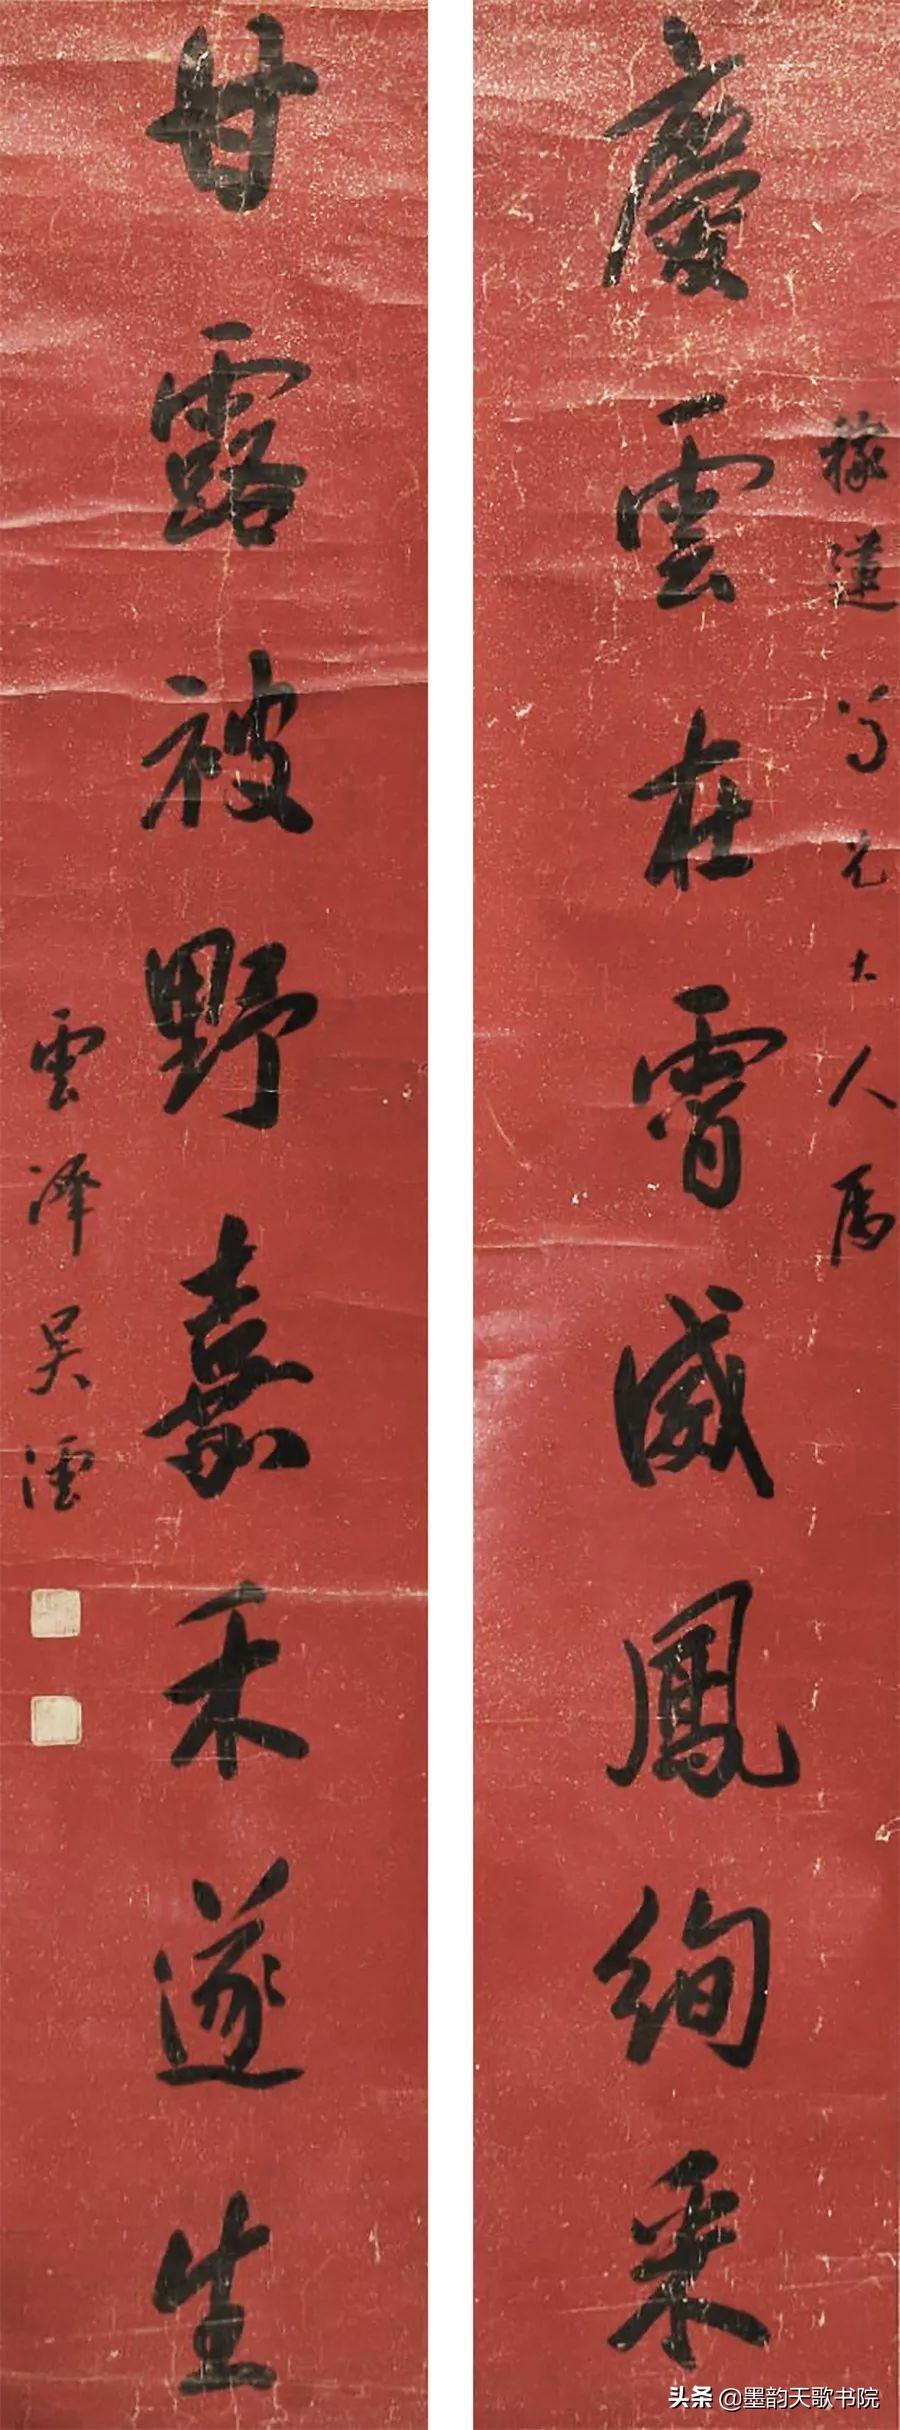 慶雲在霄威鳳絢采
稼蓮 尊兄大人屬
甘露被野嘉禾遂生
雲澤吳澐
头条 @墨韵天歌书院